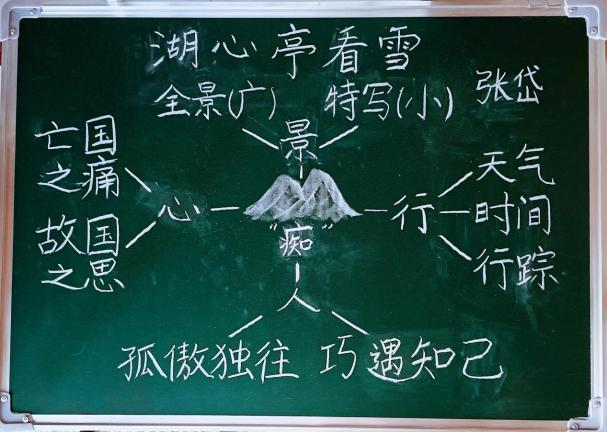 湖心亭看雪
张岱
全景(广) 特写(小)
景
亡国
之痛
故国
之思
心
"痴"
行
天气
时间
行踪
人
孤傲独往 巧遇知己